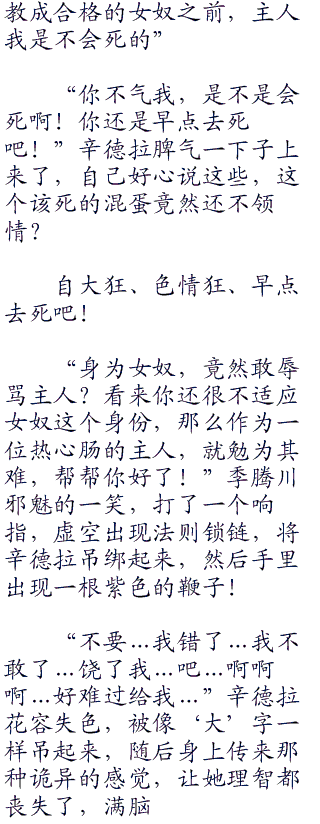 教成合格的女奴之前，主人
我是不会死的”
“你不气我，是不是会
死啊！你还是早点去死
吧！”辛德拉脾气一下子上
来了，自己好心说这些，这
个该死的混蛋竟然还不领
情？
自大狂、色情狂、早点
去死吧！
“身为女奴，竟然敢辱
骂主人？看来你还很不适应
女奴这个身份，那么作为一
位热心肠的主人，就勉为其
难，帮帮你好了！”季腾川
邪魅的一笑，打了一个响
指，虚空出现法则锁链，将
辛德拉吊绑起来，然后手里
出现一根紫色的鞭子！
“不要…我错了…我不
敢了…饶了我…吧…啊啊
啊…好难过给我…”辛德拉
花容失色，被像‘大’字一
样吊起来，随后身上传来那
种诡异的感觉，让她理智都
丧失了，满脑